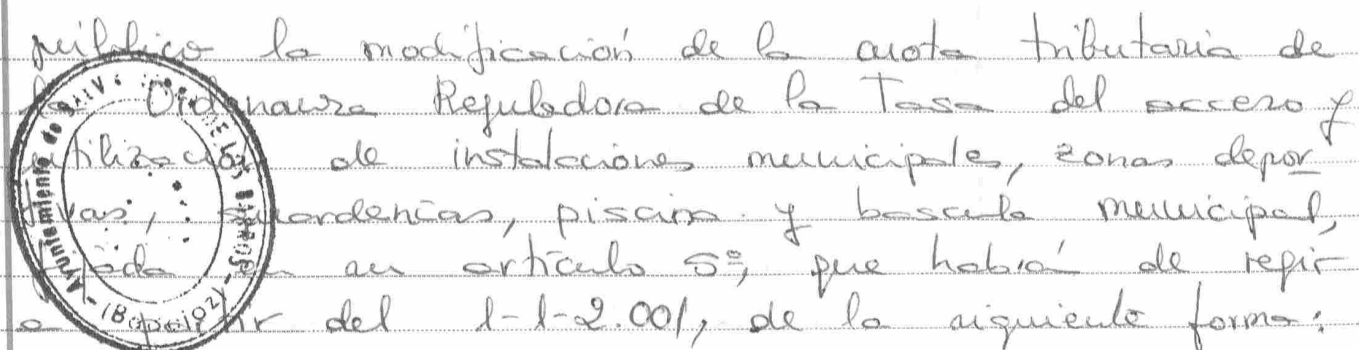 público la modificación de la cuota tributaria de
la Ordenanza Reguladora de la Tasa del acceso y
utilización de instalaciones municipales, zonas depor
tivas, guarderías, piscina y bascula municipal,
fijada en su artículo 5º, que habrá de regir
a partir del 1-1-2.001, de la siguiente forma:
Ayuntamiento de SALV
(Badajoz)